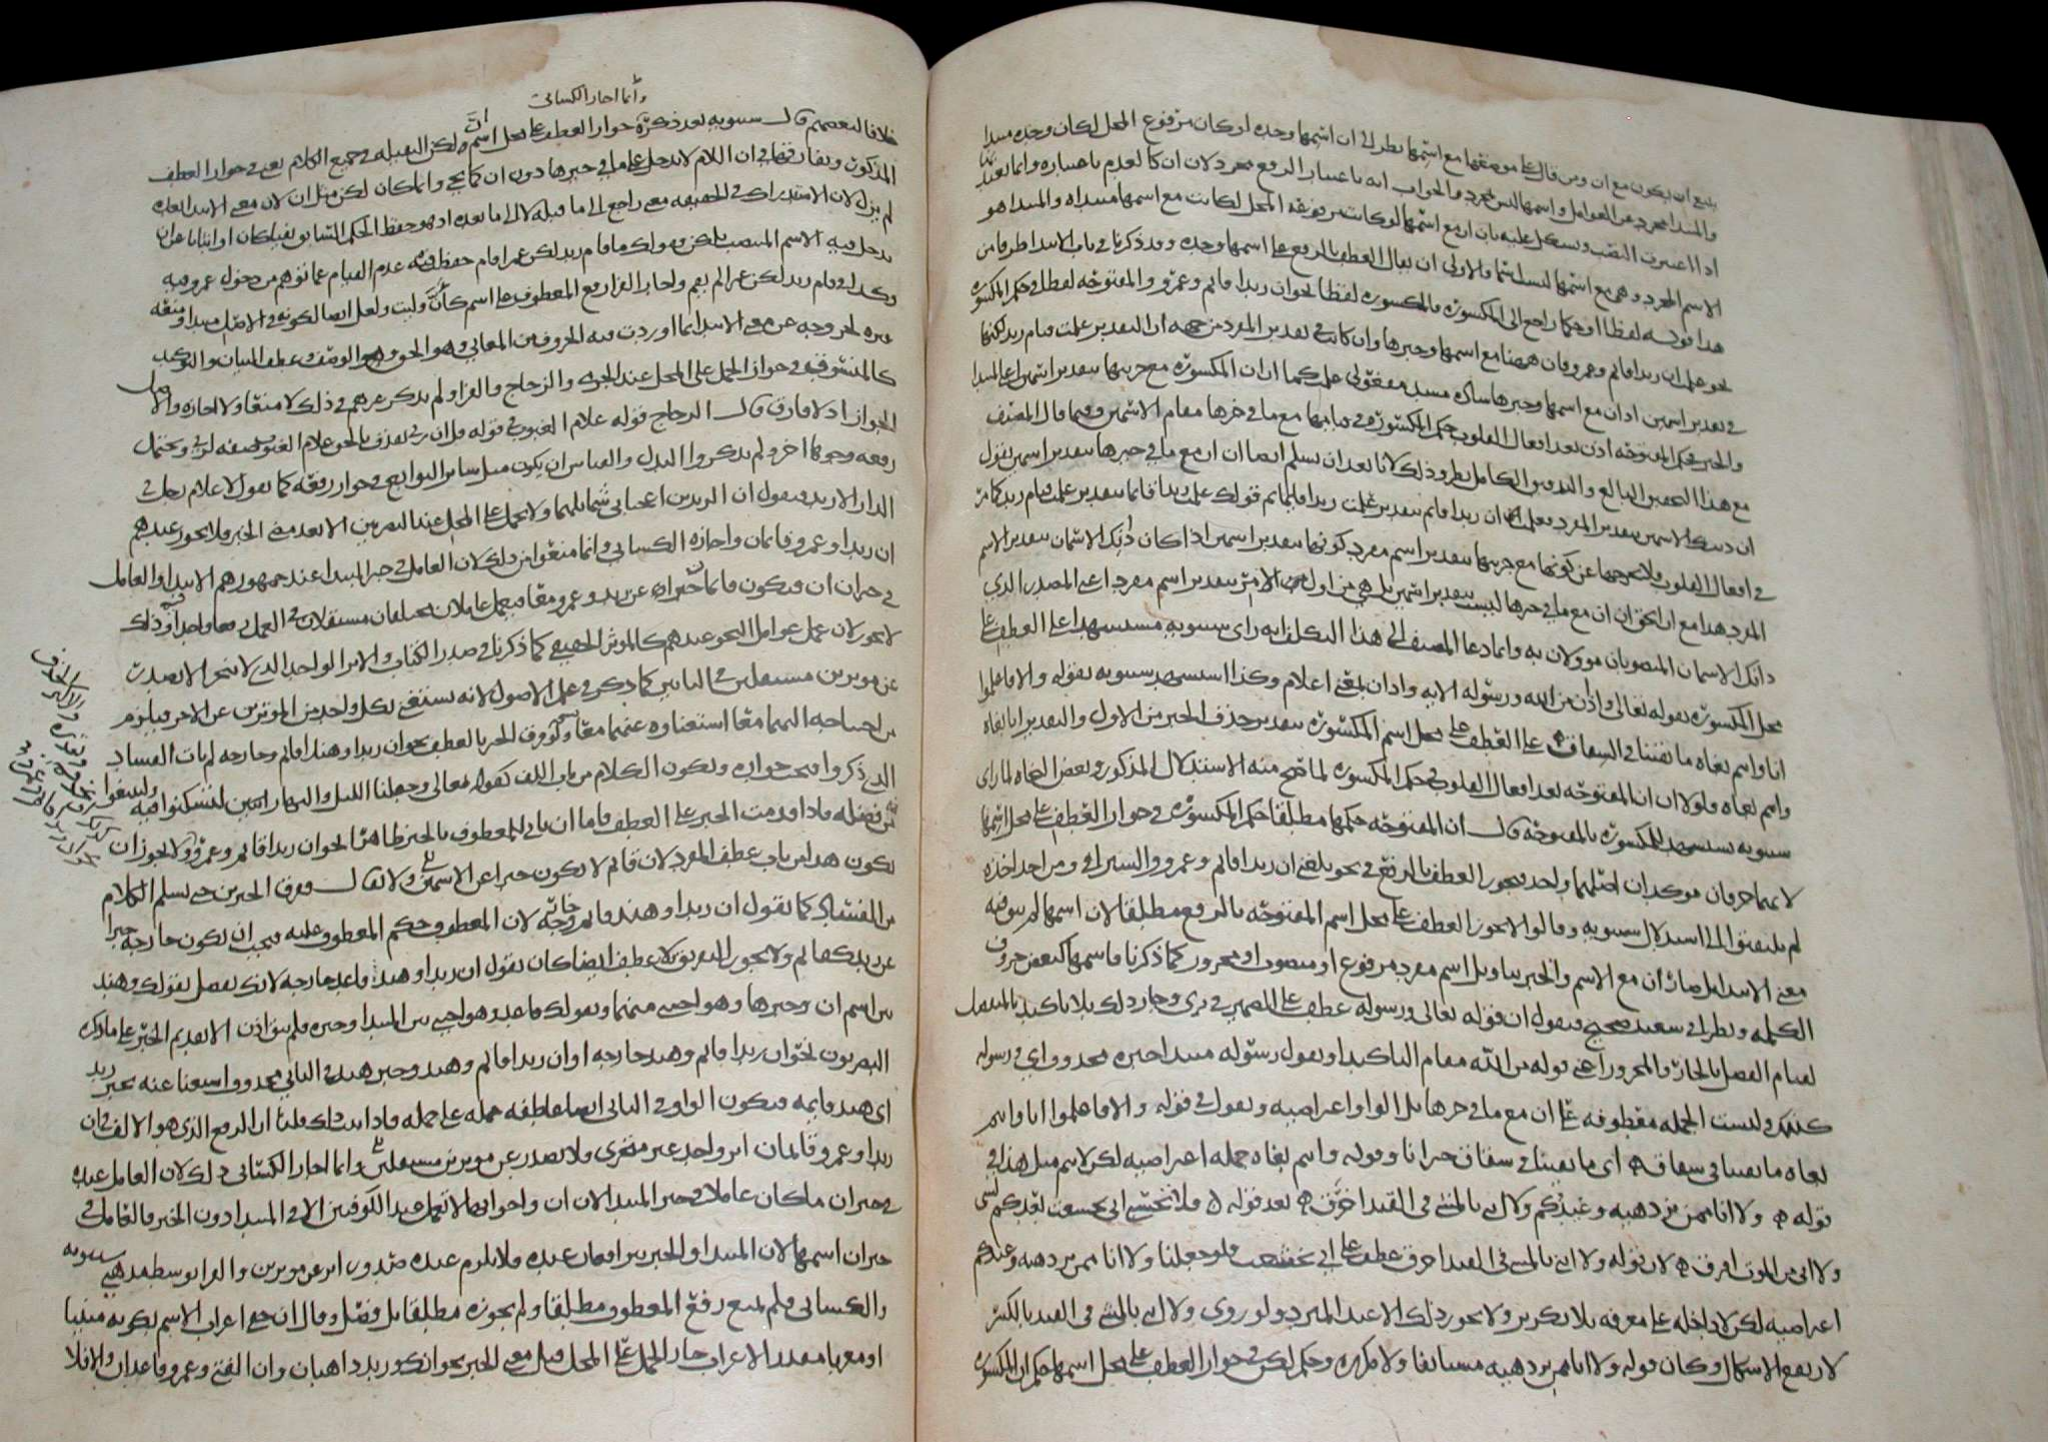 يمنع ان يكون مع ان ومن قال على موضعها مع اسمها نظر الى ان اسمها وحده لو كان مرفوع المحل لكان وحده مبتدا
والمبتدا مجرد عن العوامل واسمها ليس بمجرد والجواب انه باعتبار الرفع مجرد لان ان كالعدم باعتباره وانما يعتد بها
اذا اعتبرت النصب ويشكل عليه بان ان مع اسمها لو كانت مرفوعة المحل لكانت مع اسمها مبتداه والمبتدا هو
الاسم المجرد وهي مع اسمها ليست اسما فالاولى ان يقال العطف بالرفع على اسمها وحده وقد ذكرنا في باب الابتدا طرفا من
هذا قوله لفظا او حكما راجع الى المكسورة فالمكسورة لفظا نحو ان زيدا قائم وعمرو والمفتوحة لفظا في حكم المكسورة
نحو علمت ان زيدا قائم وعمرو فان ههنا مع اسمها وخبرها وان كانت في تقدير المفرد من جهة ان التقدير علمت قيام زيد لكنها
في تقدير اسمين اذ ان مع اسمها وخبرها ساده مسد مفعولى علمت كما ان ان المكسورة مع جزئها بتقدير اسمين اعني المبتدا
والخبر فحكم المفتوحة اذن بعد افعال القلوب حكم المكسورة في قيامها مع ما في خبرها مقام الاسمين وفيما قال المصنف
مع هذا التحقيق البالغ والتدقيق الكامل نظر وذلك لانا بعد ان نسلم ايضا ان ان مع ما في خبرها بتقدير اسمين نقول
ان ذينك الاسمين بتقدير المفرد فعلمت ان زيدا قائم بتقدير علمت زيدا قائما ثم قولك علمت زيدا قائما بتقدير علمت قيام زيد كما مر
في افعال القلوب ولا يخرجها عن كونها مع جزئها بتقدير اسم مفرد كونها بتقدير اسمين اذا كان ذانك الاسمان بتقدير الاسم
المفرد هذا مع ان الحق ان ان مع ما في خبرها ليست بتقدير اسمين بل هي من اول الامر بتقدير اسم مفرد اعني المصدر الذي
ذانك الاسمان المنصوبان موولان به وانما دعا المصنف الى هذا التكلف انه راى سيبويه مستشهدا على العطف على
محل المكسورة بقوله تعالى واذان من الله ورسوله الايه واذان بمعنى اعلام وكذا استشهد سيبويه بقوله والا فاعلموا
انا وانتم بغاة ما بقينا في شقاق ه على العطف على محل اسم المكسورة بتقدير حذف الخبر من الاول والتقدير انا بغاة
وانتم بغاة فلولا ان ان المفتوحة بعد افعال القلوب في حكم المكسورة لما صح منه الاستدلال المذكور وبعض النحاة لما راى
سيبويه يستشهد للمكسورة بالمفتوحة قال ان المفتوحة حكمها مطلقا حكم المكسورة في جواز العطف على محل اسمها
لانهما حرفان موكدان اصلهما واحد فيجوز العطف بالرفع في نحو بلغني ان زيدا قائم وعمرو والسيرافي ومن اخذ اخذه
لم يلتفتوا الى استدلال سيبويه وقالوا لا يجوز العطف على محل اسم المفتوحة بالرفع مطلقا لان اسمها لم يبق فيه
معنى الابتدا بل صار ان مع الاسم والخبر بتاويل اسم مفرد مرفوع او منصوب او مجرور كما ذكرنا فاسمها كبعض حروف
الكلمه ونظر ابي سعيد صحيح فنقول ان قوله تعالى ورسوله عطف على الضمير في بري وجاز ذلك بلا تاكيد بالمنفصل
لقيام الفصل بالجار والمجرور اعني قوله من الله مقام التاكيد او نقول رسوله مبتدا خبره محذوف اي ورسوله
كذلك وليست الجمله معطوفه على ان مع ما في خبرها بل الواو اعتراضيه ونقول في قوله والا فاعلموا انا وانتم
بغاة ما بقينا في شقاق ه اي ما بقينا في شقاق خبر انا وقوله وانتم بغاة جمله اعتراضيه لكن لا يتم مثل هذا في
قوله ه ولا انا ممن يزدهيه وعيدكم ولا اني بالمشي في القيد اخرق ه بعد قوله ه فلا تحسبي اني تخشعت بعدكم لشي
ولا اني من الموت افرق ه لان قوله ولا اني بالمشي في القيد اخرق عطف على اني تخشعت فلو جعلنا ولا انا ممن يزدهيه وعيدكم
اعتراضيه لكن لا داخله على معرفه بلا تكرير ولا يجوز ذلك الا عند المبرد ولو روي ولا اني بالمشي في القيد بالكسر
لارتفع الاشكال وكان قوله ولا انا ممن يزدهيه مستانفا ولا مكرره وحكم لكن في جواز العطف على محل اسمها حكم ان المكسورة
وانما اجاز الكسائي
خلافا لبعضهم قال سيبويه بعد ذكره جواز العطف على محل اسم ان ولكن الثقيله في جميع الكلام يعني في جواز العطف
المذكور ويفارقها في ان اللام لا تدخل على ما في خبرها دون ان كما يجي وانما كان لكن مثل ان لان معنى الابتدا بعده
لم يزل لان الاستدراك في الحقيقه معنى راجع الى ما قبله لا الى ما بعده اذ هو حفظ الحكم السابق نفيا كان او اثباتا عن ان
يدخل فيه الاسم المنتصب بلكن فقولك ما قام زيد لكن عمرا قام حفظ فيه عدم القيام عما توهم من دخول عمرو فيه
وكذا في قام زيد لكن عمرا لم يقم واجاز الفرا رفع المعطوف على اسم كان وليت ولعل ايضا لكونه في الاصل مبتدا ومنعه
غيره لخروجه عن معنى الابتدا بما اوردت فيه الحروف من المعاني وهو الحق والوصف وعطف البيان والتوكيد
كالمنسوق في جواز الحمل على المحل عند الجرمي والزجاج والفرا ولم يذكر غيرهم في ذلك لا منعا ولا اجازه والاصل
الجواز اذ لا فارق قال الزجاج قوله علام الغيوب في قوله قل ان ربي يقذف بالحق علام الغيوب صفه لربي ويحتمل
رفعه وجوها اخر ولم يذكروا البدل والقياس ان يكون مثل سائر التوابع في جواز رفعه كما تقول لا غلام رجل في
الدار الا زيد فنقول ان الزيدين اعجباني شمائلهما ولا يحمل على المحل عند البصريين الا بعد مضي الخبر فلا يجوز عندهم
ان زيدا وعمرو قائمان واجازه الكسائي وانما منعوا من ذلك لان العامل في خبر المبتدا عند جمهورهم الابتدا والعامل
في خبر ان ان فيكون قائمان خبرا عن زيد وعمرو معا فيعمل عاملان مختلفان مستقلان في العمل في معا واحدا فيه وذلك
لا يجوز لان عمل عوامل النحو عندهم كالموثر الحقيقي كما ذكرنا في صدر الكتاب والاثر الواحد الذي لا يتجزا لا يصدر
عن موثرين مستقلين في التاثير كما ذكر في علم الاصول لانه يستغني بكل واحد من الموثرين عن الاخر فيلزم
من احتياجه اليهما معا استغناوه عنهما معا ولو فرق الخبر بالعطف نحو ان زيدا وهندا قائم وخارجه لم يات الفساد
الذي ذكروا فيجب جوازه ويكون الكلام من باب اللف كقوله تعالى وجعلنا الليل والنهار ايتين لتسكنوا فيه ولتبتغوا
من فضله فاذا قدمت الخبر على العطف فاما ان ياتي للمعطوف بالخبر ظاهرا نحو ان زيدا قائم وعمرو ولا يجوز ان
يكون هذا من باب عطف المفرد لان قائم لا يكون خبرا عن الاسمين ولا يقال فرق الخبرين حتى يسلم الكلام
من الفساد كما تقول ان زيدا وهند قائم وخارجه لان المعطوف حكم المعطوف عليه فيجب ان يكون خارجه خبرا
عن زيد كقائم ولا يجوز التفريق بلا عطف ايضا كان تقول ان زيدا وهند قاعد خارجه لانك تفصل بقولك وهند
بين اسم ان وخبرها وهو اجنبي منهما وبقولك قاعد وهو اجنبي بين المبتدا وخبره فلم يبق اذن الا تقديم الخبر على ما ذكره
البصريون نحو ان زيدا قائم وهند خارجه او ان زيدا قائم وهند وخبر هند في الثاني محذوف استغنا عنه بخبر زيد
اي هند قايمه فيكون الواو في الثاني ايضا عاطفه جمله على جمله فاذا ثبت ذلك قلنا ان الرفع الذي هو الالف في ان
زيدا وعمرو قائمان اثر واحد غير متجزي ولا يصدر عن موثرين مستقلين وانما اجاز الكسائي ذلك لان العامل عنده
في خبر ان ما كان عاملا في خبر المبتدا لان ان واخواتها لا تعمل عند الكوفيين الا في المبتدا دون الخبر فالعامل في
خبر ان اسمها لان المبتدا والخبر يترافعان عنده فلا يلزم عنده صدور اثر عن موثرين والفرا توسط مذهبي سيبويه
والكسائي فلم يمنع رفع المعطوف مطلقا ولم يجوزه مطلقا بل فصل وقال ان خفي اعراب الاسم بكونه مبنيا
او معربا مقدر الاعراب جاز الحمل على المحل قبل مضي الخبر نحو انك وزيد ذاهبان وان الفتى وعمرو قاعدان والا فلا